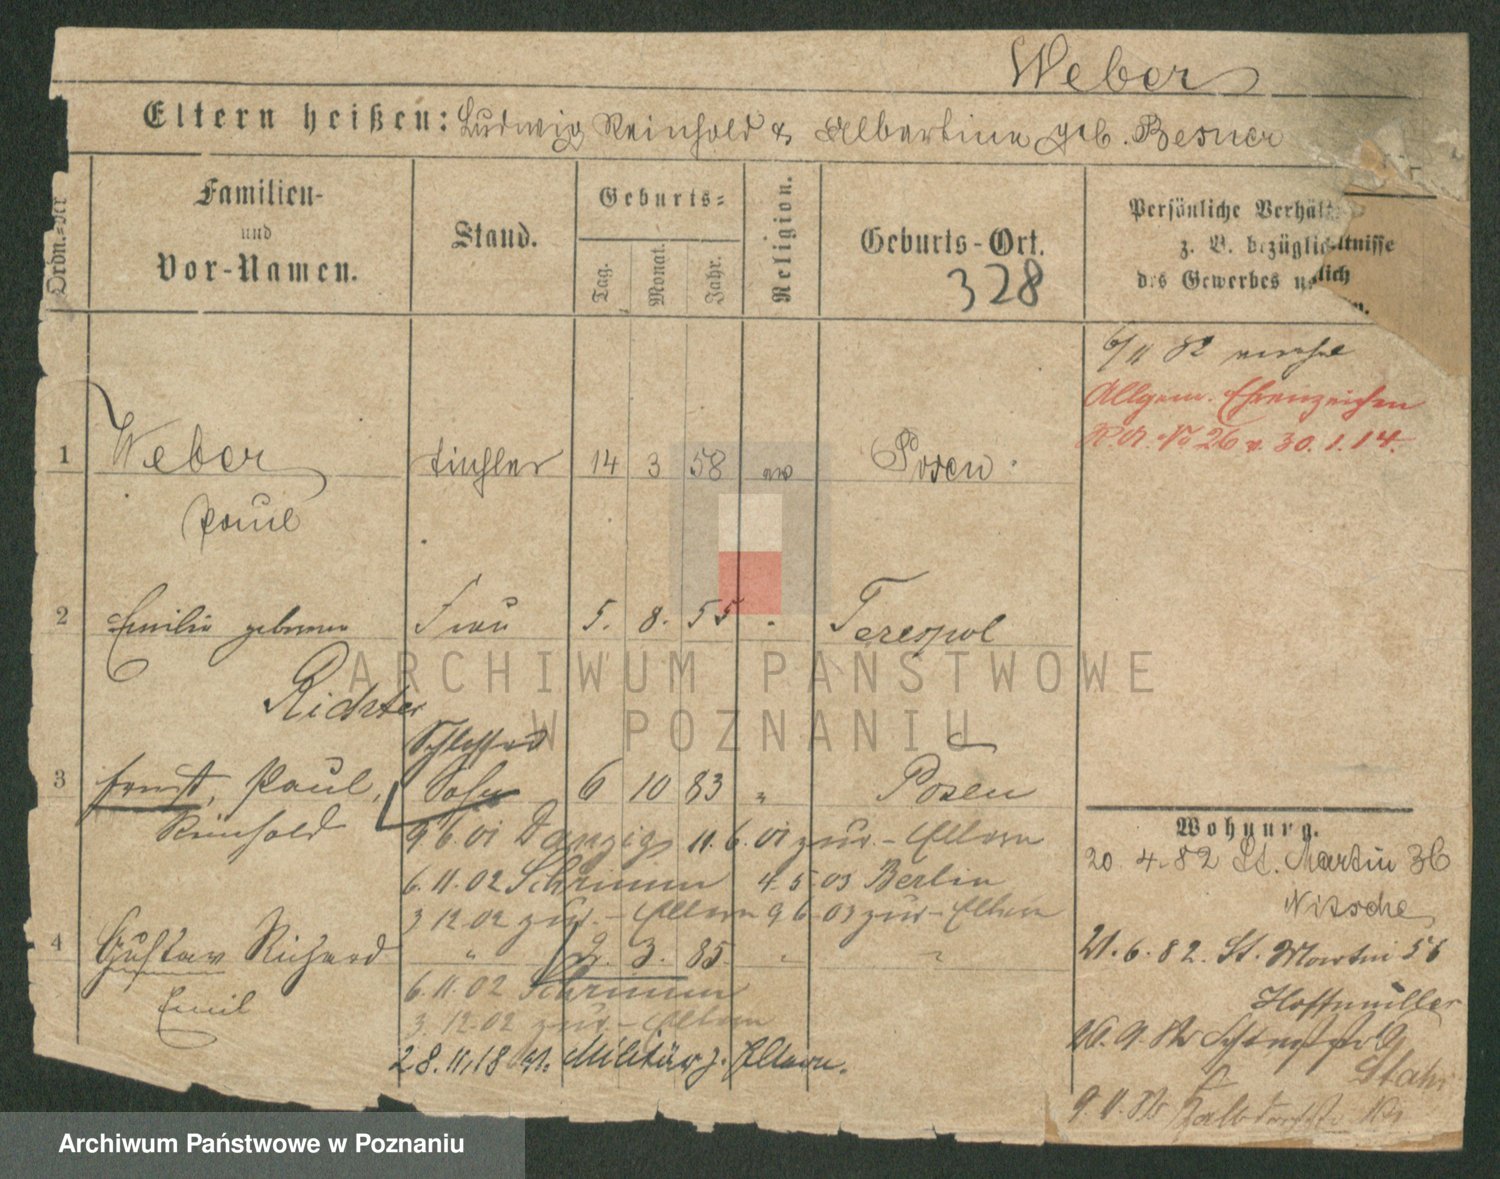 Weber
Eltern heißen: Ludwig Reinhold & Albertine geb. Besner
Ordn.=der
Familien-
und
Vor-Namen.
Stand.
Geburts=
Tag.
Monat.
Jahr.
Religion.
Geburts-Ort.
328
Persönliche Verhält
z. B. bezüglich
ltnisse
des Gewerbes
lich
6/11 82
Allgem. Ehrenzeichen
No 26 v. 30.1.14.
1 Weber Tischler 14 3 58 ev Posen
Paul
2 Emilie geborene Frau 5. 8. 55 Terespol
Richter
Schlosser
3 Ernst, Paul, Sohn 6 10 83 " Posen
Reinhold
9 6.01 Danzig 11.6.01 zur.- Eltern
6.11.02 Schrimm 4.5 03 Berlin
3 12.02 zur.- Eltern 9 6.03 zur- Eltern
4 Gustav Richard " 2. 3. 85. " "
Emil
6.11.02 Schrimm
3.12.02 zur.- Eltern
28.11.18 v. Militär z. Eltern.
Wohnung.
20.4.82 St. Martin 36
Nitsche
21.6.82. St. Martin 56
Hoffmüller
26.9.82
Stahr
9.11.82 Halbdorfstr.
ARCHIWUM PAŃSTWOWE
W POZNANIU
Archiwum Państwowe w Poznaniu